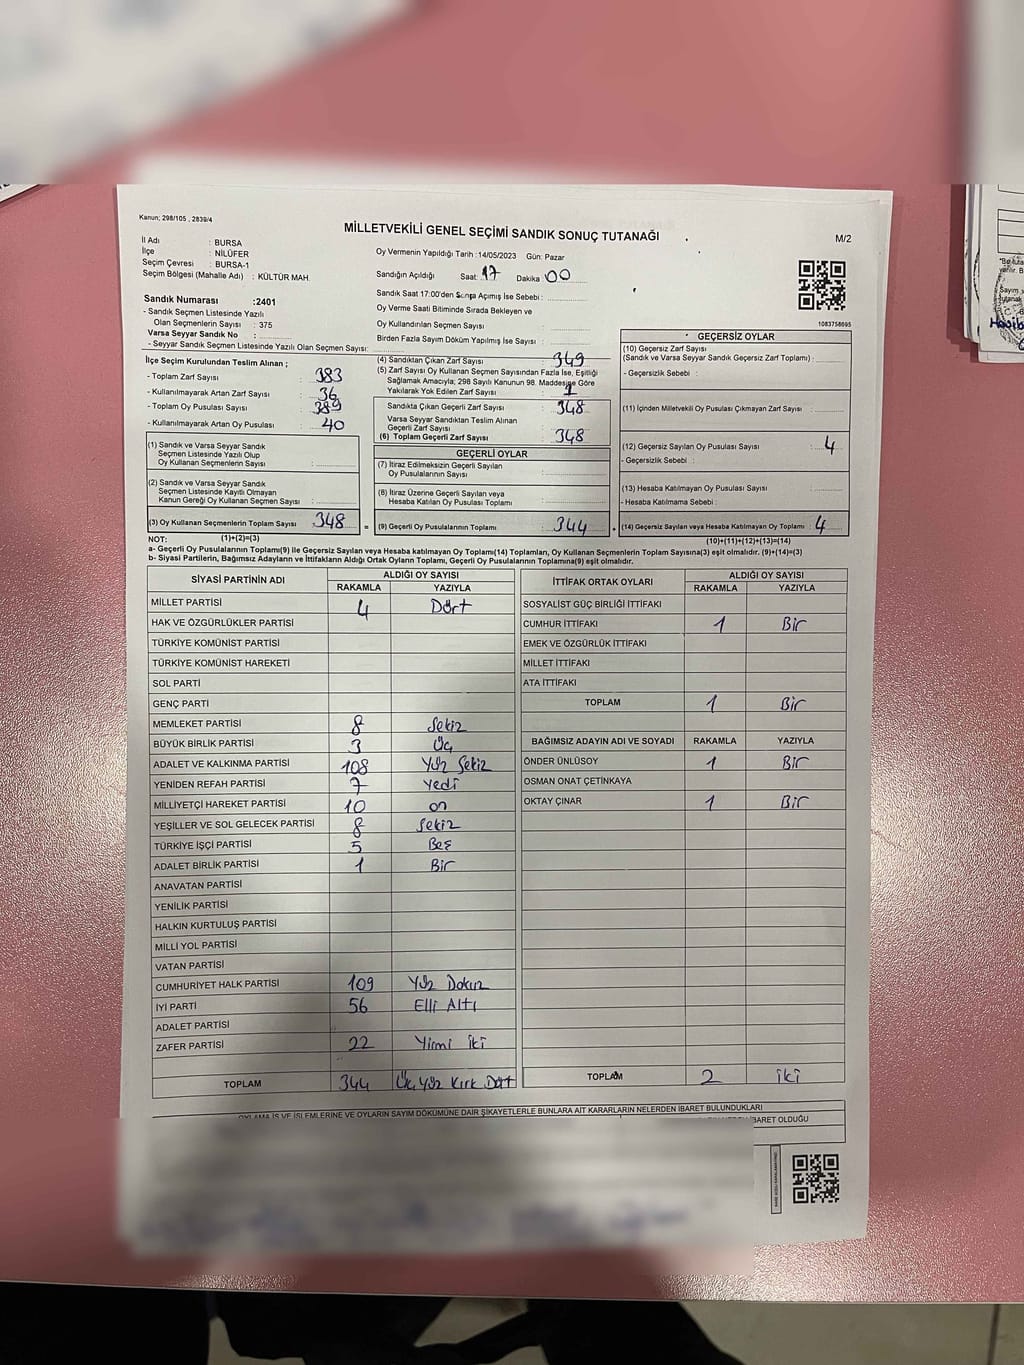 Kanun; 298/105 , 2839/4
MİLLETVEKİLİ GENEL SEÇİMİ SANDIK SONUÇ TUTANAĞI
M/2
İl Adı : BURSA
İlçe : NİLÜFER
Seçim Çevresi : BURSA-1
Seçim Bölgesi (Mahalle Adı) : KÜLTÜR MAH.
Oy Vermenin Yapıldığı Tarih :14/05/2023 Gün: Pazar
Sandığın Açıldığı Saat: 17 Dakika 00
Sandık Saat 17:00'den Sonra Açımış İse Sebebi :
Oy Verme Saati Bitiminde Sırada Bekleyen ve
Oy Kullandırılan Seçmen Sayısı :
Birden Fazla Sayım Döküm Yapılmış İse Sayısı :
1083758695
Sandık Numarası :2401
- Sandık Seçmen Listesinde Yazılı
Olan Seçmenlerin Sayısı : 375
Varsa Seyyar Sandık No :
- Seyyar Sandık Seçmen Listesinde Yazılı Olan Seçmen Sayısı:
İlçe Seçim Kurulundan Teslim Alınan ;
- Toplam Zarf Sayısı : 383
- Kullanılmayarak Artan Zarf Sayısı : 36
- Toplam Oy Pusulası Sayısı : 389
- Kullanılmayarak Artan Oy Pusulası : 40
(1) Sandık ve Varsa Seyyar Sandık
Seçmen Listesinde Yazılı Olup
Oy Kullanan Seçmenlerin Sayısı :
(2) Sandık ve Varsa Seyyar Sandık
Seçmen Listesinde Kayıtlı Olmayan
Kanun Gereği Oy Kullanan Seçmen Sayısı :
(3) Oy Kullanan Seçmenlerin Toplam Sayısı : 348 =
(4) Sandıktan Çıkan Zarf Sayısı : 349
(5) Zarf Sayısı Oy Kullanan Seçmen Sayısından Fazla İse, Eşitliği
Sağlamak Amacıyla; 298 Sayılı Kanunun 98. Maddesine Göre
Yakılarak Yok Edilen Zarf Sayısı : 1
Sandıkta Çıkan Geçerli Zarf Sayısı : 348
Varsa Seyyar Sandıktan Teslim Alınan
Geçerli Zarf Sayısı :
(6) Toplam Geçerli Zarf Sayısı : 348
GEÇERLİ OYLAR
(7) İtiraz Edilmeksizin Geçerli Sayılan
Oy Pusulalarının Sayısı :
(8) İtiraz Üzerine Geçerli Sayılan veya
Hesaba Katılan Oy Pusulası Toplamı :
(9) Geçerli Oy Pusulalarının Toplamı : 344
GEÇERSİZ OYLAR
(10) Geçersiz Zarf Sayısı
(Sandık ve Varsa Seyyar Sandık Geçersiz Zarf Toplamı) :
- Geçersizlik Sebebi :
(11) İçinden Milletvekili Oy Pusulası Çıkmayan Zarf Sayısı :
(12) Geçersiz Sayılan Oy Pusulası Sayısı : 4
- Geçersizlik Sebebi :
(13) Hesaba Katılmayan Oy Pusulası Sayısı :
- Hesaba Katılmama Sebebi :
(14) Geçersiz Sayılan veya Hesaba Katılmayan Oy Toplamı : 4
NOT: (1)+(2)=(3)
(10)+(11)+(12)+(13)=(14)
a- Geçerli Oy Pusulalarının Toplamı(9) ile Geçersiz Sayılan veya Hesaba katılmayan Oy Toplamı(14) Toplamları, Oy Kullanan Seçmenlerin Toplam Sayısına(3) eşit olmalıdır. (9)+(14)=(3)
b- Siyasi Partilerin, Bağımsız Adayların ve İttifakların Aldığı Ortak Oyların Toplamı, Geçerli Oy Pusulalarının Toplamına(9) eşit olmalıdır.
SİYASİ PARTİNİN ADI ALDIĞI OY SAYISI
RAKAMLA YAZIYLA
MİLLET PARTİSİ 4 Dört
HAK VE ÖZGÜRLÜKLER PARTİSİ
TÜRKİYE KOMÜNİST PARTİSİ
TÜRKİYE KOMÜNİST HAREKETİ
SOL PARTİ
GENÇ PARTİ
MEMLEKET PARTİSİ 8 Sekiz
BÜYÜK BİRLİK PARTİSİ 3 Üç
ADALET VE KALKINMA PARTİSİ 108 Yüz Sekiz
YENİDEN REFAH PARTİSİ 7 Yedi
MİLLİYETÇİ HAREKET PARTİSİ 10 on
YEŞİLLER VE SOL GELECEK PARTİSİ 8 Sekiz
TÜRKİYE İŞÇİ PARTİSİ 5 Beş
ADALET BİRLİK PARTİSİ 1 Bir
ANAVATAN PARTİSİ
YENİLİK PARTİSİ
HALKIN KURTULUŞ PARTİSİ
MİLLİ YOL PARTİSİ
VATAN PARTİSİ
CUMHURİYET HALK PARTİSİ 109 Yüz Dokuz
İYİ PARTİ 56 Elli Altı
ADALET PARTİSİ
ZAFER PARTİSİ 22 Yirmi İki
TOPLAM 344 Üç Yüz Kırk Dört
İTTİFAK ORTAK OYLARI ALDIĞI OY SAYISI
RAKAMLA YAZIYLA
SOSYALİST GÜÇ BİRLİĞİ İTTİFAKI
CUMHUR İTTİFAKI 1 Bir
EMEK VE ÖZGÜRLÜK İTTİFAKI
MİLLET İTTİFAKI
ATA İTTİFAKI
TOPLAM 1 Bir
BAĞIMSIZ ADAYIN ADI VE SOYADI RAKAMLA YAZIYLA
ÖNDER ÜNLÜSOY 1 Bir
OSMAN ONAT ÇETİNKAYA
OKTAY ÇINAR 1 Bir
TOPLAM 2 iki
OYLAMA İŞ VE İŞLEMLERİNE VE OYLARIN SAYIM DÖKÜMÜNE DAİR ŞİKAYETLERLE BUNLARA AİT KARARLARIN NELERDEN İBARET BULUNDUKLARI
İBARET OLDUĞU